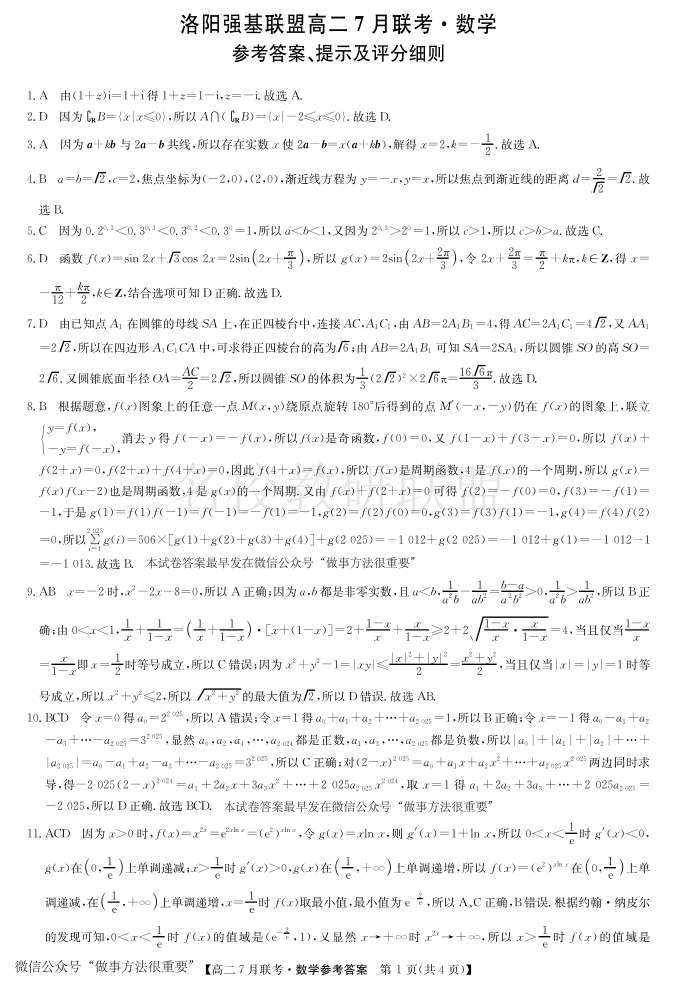 洛阳强基联盟高二 7 月联考·数学
参考答案、提示及评分细则
1. A　由(1+z)i=1+i 得 1+z=1-i,z=-i. 故选 A.
2. D　因为∁RB={x|x≤0},所以 A∩(∁RB)={x|-2≤x≤0}. 故选 D.
3. A　因为 a+kb 与 2a-b 共线,所以存在实数 x 使 2a-b=x(a+kb),解得 x=2,k=-1/2. 故选 A.
4. B　a=b=√2,c=2,焦点坐标为(-2,0),(2,0),渐近线方程为 y=-x,y=x,所以焦点到渐近线的距离 d=2/√2=√2. 故
选 B.
5. C　因为 0.2^0.3<0.3^0.3<0.3^0.2<0.3^0=1,所以 a<b<1,又因为 2^0.3>2^0=1,所以 c>1,所以 c>b>a. 故选 C.
6. D　函数 f(x)=sin 2x+√3cos 2x=2sin(2x+π/3),所以 g(x)=2sin(2x+2π/3),令 2x+2π/3=π/2+kπ,k∈Z,得 x=
-π/12+kπ/2,k∈Z,结合选项可知 D 正确. 故选 D.
7. D　由已知点 A₁ 在圆锥的母线 SA 上,在正四棱台中,连接 AC,A₁C₁,由 AB=2A₁B₁=4,得 AC=2A₁C₁=4√2,又 AA₁
=2√2,所以在四边形 A₁C₁CA 中,可求得正四棱台的高为√6;由 AB=2A₁B₁ 可知 SA=2SA₁,所以圆锥 SO 的高 SO=
2√6. 又圆锥底面半径 OA=AC/2=2√2,所以圆锥 SO 的体积为1/3(2√2)²×2√6π=16√6π/3. 故选 D.
8. B　根据题意,f(x)图象上的任意一点 M(x,y)绕原点旋转 180°后得到的点 M′(-x,-y)仍在 f(x)的图象上,联立
{y=f(x), -y=f(-x), 消去 y 得 f(-x)=-f(x),所以 f(x)是奇函数,f(0)=0,又 f(1-x)+f(3-x)=0,所以 f(x)+
f(2+x)=0,f(2+x)+f(4+x)=0,因此 f(4+x)=f(x),所以 f(x)是周期函数,4 是 f(x)的一个周期,所以 g(x)=
f(x)f(x-2)也是周期函数,4 是 g(x)的一个周期. 又由 f(x)+f(2+x)=0 可得 f(2)=-f(0)=0,f(3)=-f(1)=
-1,于是 g(1)=f(1)f(-1)=f(-1)=-f(1)=-1,g(2)=f(2)f(0)=0,g(3)=f(3)f(1)=-1,g(4)=f(4)f(2)
=0,所以∑(i=1→2 025)g(i)=506×[g(1)+g(2)+g(3)+g(4)]+g(2 025)=-1 012+g(2 025)=-1 012+g(1)=-1 012-1
=-1 013. 故选 B.　本试卷答案最早发在微信公众号“做事方法很重要”
9. AB　x=-2 时,x²-2x-8=0,所以 A 正确;因为 a,b 都是非零实数,且 a<b,1/(a²b)-1/(ab²)=(b-a)/(a²b²)>0,1/(a²b)>1/(ab²),所以 B 正
确;由 0<x<1,1/x+1/(1-x)=(1/x+1/(1-x))·[x+(1-x)]=2+(1-x)/x+x/(1-x)≥2+2√((1-x)/x·x/(1-x))=4,当且仅当(1-x)/x
=x/(1-x)即 x=1/2时等号成立,所以 C 错误;因为 x²+y²-1=|xy|≤(|x|²+|y|²)/2=(x²+y²)/2,当且仅当|x|=|y|=1 时等
号成立,所以 x²+y²≤2,所以√(x²+y²)的最大值为√2,所以 D 错误. 故选 AB.
10. BCD　令 x=0 得 a₀=2^2 025,所以 A 错误;令 x=1 得 a₀+a₁+a₂+⋯+a₂ ₀₂₅=1,所以 B 正确;令 x=-1 得 a₀-a₁+a₂
-a₃+⋯-a₂ ₀₂₅=3^2 025,显然 a₀,a₂,a₄,⋯,a₂ ₀₂₄ 都是正数,a₁,a₃,⋯,a₂ ₀₂₅ 都是负数,所以|a₀|+|a₁|+|a₂|+⋯+
|a₂ ₀₂₅|=a₀-a₁+a₂-a₃+⋯-a₂ ₀₂₅=3^2 025,所以 C 正确;对(2-x)^2 025=a₀+a₁x+a₂x²+⋯+a₂ ₀₂₅x^2 025 两边同时求
导,得-2 025(2-x)^2 024=a₁+2a₂x+3a₃x²+⋯+2 025a₂ ₀₂₅x^2 024,取 x=1 得 a₁+2a₂+3a₃+⋯+2 025a₂ ₀₂₅=
-2 025,所以 D 正确. 故选 BCD.　本试卷答案最早发在微信公众号“做事方法很重要”
11. ACD　因为 x>0 时,f(x)=x^2x=e^(2xln x)=(e²)^(xln x),令 g(x)=xln x,则 g′(x)=1+ln x,所以 0<x<1/e时 g′(x)<0,
g(x)在(0,1/e)上单调递减;x>1/e时 g′(x)>0,g(x)在(1/e,+∞)上单调递增,所以 f(x)=(e²)^(xln x)在(0,1/e)上单
调递减,在(1/e,+∞)上单调递增,x=1/e时 f(x)取最小值,最小值为 e^(-2/e),所以 A、C 正确,B 错误. 根据约翰·纳皮尔
的发现可知,0<x<1/e时 f(x)的值域是(e^(-2/e),1),又显然 x→+∞时 x^2x→+∞,所以 x>1/e时 f(x)的值域是
名校教研联盟
微信公众号“做事方法很重要”【高二 7 月联考·数学参考答案　第 1 页(共 4 页)】